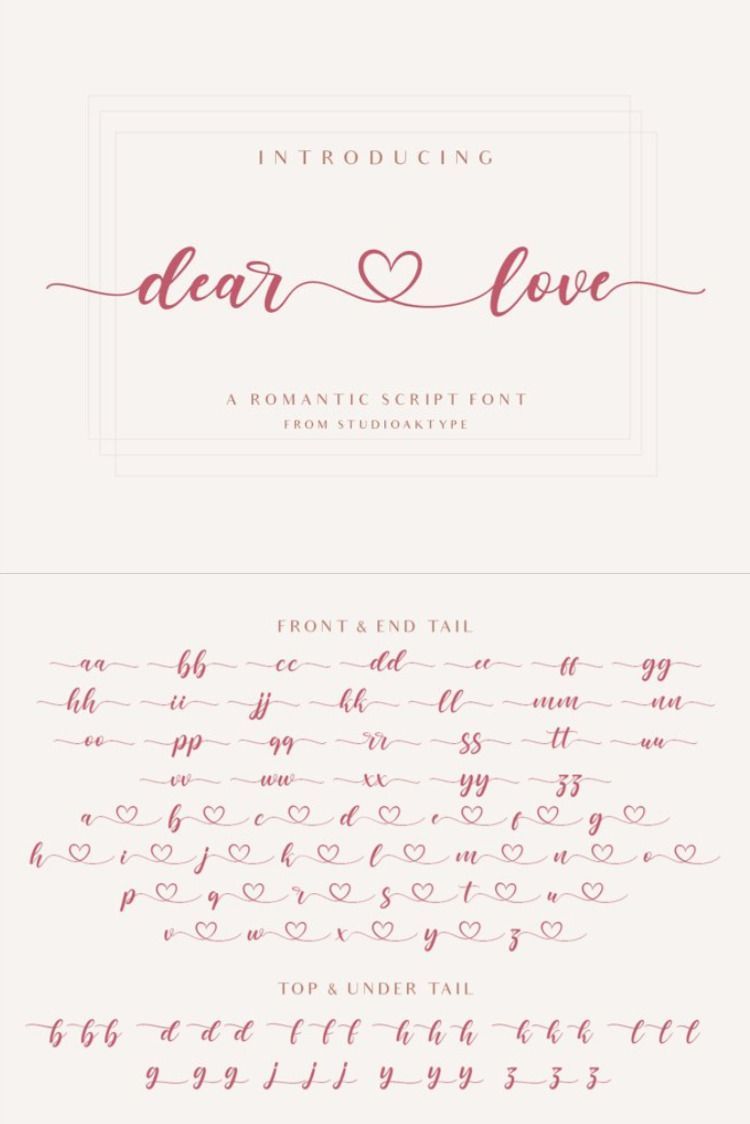 INTRODUCING
dear love
A ROMANTIC SCRIPT FONT
FROM STUDIOAKTYPE
FRONT & END TAIL
aa bb cc dd ee ff gg
hh ii jj kk ll mm nn
oo pp qq rr ss tt uu
vv ww xx yy zz
a b c d e f g
h i j k l m n o
p q r s t u
v w x y z
TOP & UNDER TAIL
b b b d d d f f f h h h k k k l l l
g g g j j j y y y z z z